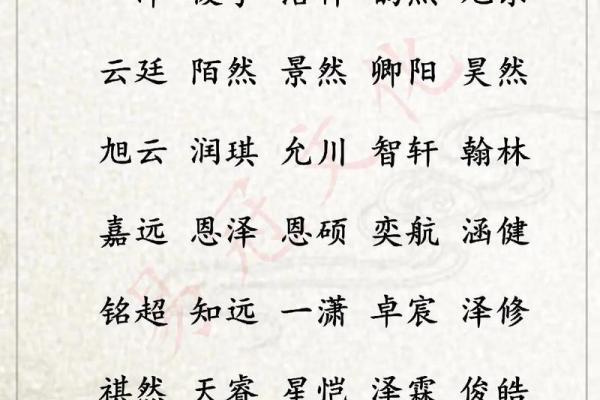 云廷 陌然 景然 卿阳 昊然
旭云 润琪 允川 智轩 翰林
嘉远 恩泽 恩硕 奕航 涵健
铭超 知远 一潇 卓宸 泽修
祺然 天睿 星恺 泽霖 俊皓